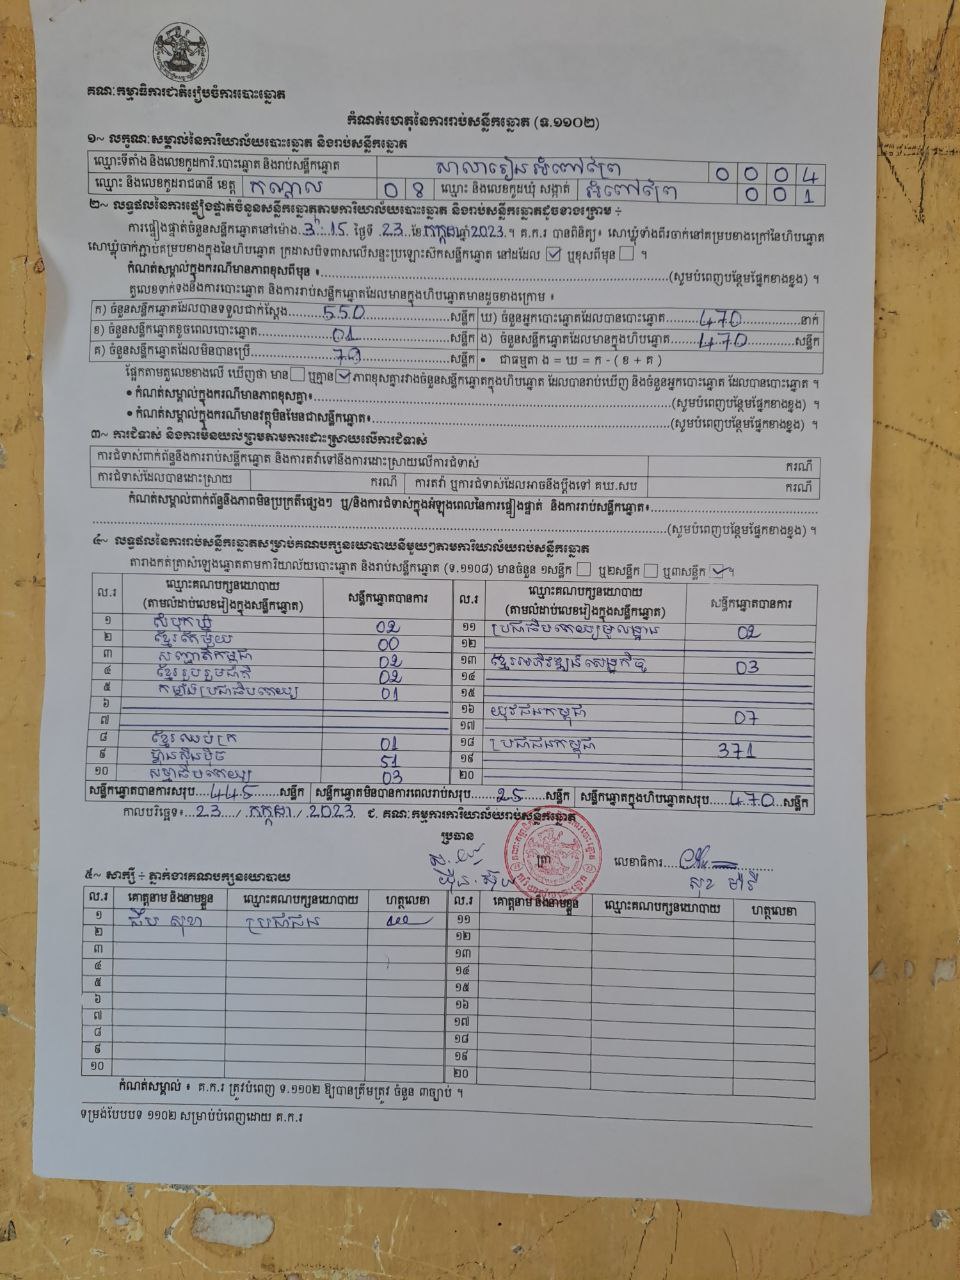 គណៈកម្មាធិការជាតិរៀបចំការបោះឆ្នោត
កំណត់ហេតុនៃការរាប់សន្លឹកឆ្នោត (ទ.១១០២)
១~ លក្ខណៈសម្គាល់នៃការិយាល័យបោះឆ្នោត និងរាប់សន្លឹកឆ្នោត
ឈ្មោះទីតាំង និងលេខកូដការិ.បោះឆ្នោត និងរាប់សន្លឹកឆ្នោត សាលារៀនអំពៅព្រៃ 0 0 0 4
ឈ្មោះ និងលេខកូដរាជធានី ខេត្ត កណ្តាល 0 8 ឈ្មោះ និងលេខកូដឃុំ សង្កាត់ អំពៅព្រៃ 0 0 1
២~ លទ្ធផលនៃការផ្ទៀងផ្ទាត់ចំនួនសន្លឹកឆ្នោតតាមការិយាល័យបោះឆ្នោត និងរាប់សន្លឹកឆ្នោតដូចខាងក្រោម ÷
ការផ្ទៀងផ្ទាត់ចំនួនសន្លឹកឆ្នោតនៅម៉ោង 3:15 ថ្ងៃទី 23 ខែ កក្កដា ឆ្នាំ 2023។ គ.ក.រ បានពិនិត្យ៖ សោឃ្លុំទាំងពីរចាក់នៅគម្របខាងក្រៅនៃហិបឆ្នោត
សោឃ្លុំចាក់ភ្ជាប់គម្របខាងក្នុងនៃហិបឆ្នោត ក្រដាសបិទពាសលើសន្ទះប្រឡោះស៊កសន្លឹកឆ្នោត នៅដដែល ឬខុសពីមុន ។
កំណត់សម្គាល់ក្នុងករណីមានភាពខុសពីមុន ៖ (សូមបំពេញបន្ថែមផ្នែកខាងខ្នង) ។
តួលេខទាក់ទងនឹងការបោះឆ្នោត និងការរាប់សន្លឹកឆ្នោតដែលមានក្នុងហិបឆ្នោតមានដូចខាងក្រោម ៖
ក) ចំនួនសន្លឹកឆ្នោតដែលបានទទួលជាក់ស្តែង 550 សន្លឹក ឃ) ចំនួនអ្នកបោះឆ្នោតដែលបានបោះឆ្នោត 470 នាក់
ខ) ចំនួនសន្លឹកឆ្នោតខូចពេលបោះឆ្នោត 01 សន្លឹក ង) ចំនួនសន្លឹកឆ្នោតដែលមានក្នុងហិបឆ្នោត 470 សន្លឹក
គ) ចំនួនសន្លឹកឆ្នោតដែលមិនបានប្រើ 79 សន្លឹក • ជាធម្មតា ង = ឃ = ក - ( ខ + គ )
ផ្អែកតាមតួលេខខាងលើ ឃើញថា មាន ឬគ្មាន ភាពខុសគ្នារវាងចំនួនសន្លឹកឆ្នោតក្នុងហិបឆ្នោត ដែលបានរាប់ឃើញ និងចំនួនអ្នកបោះឆ្នោត ដែលបានបោះឆ្នោត ។
• កំណត់សម្គាល់ក្នុងករណីមានភាពខុសគ្នា៖ (សូមបំពេញបន្ថែមផ្នែកខាងខ្នង) ។
• កំណត់សម្គាល់ក្នុងករណីមានវត្ថុមិនមែនជាសន្លឹកឆ្នោត៖ (សូមបំពេញបន្ថែមផ្នែកខាងខ្នង) ។
៣~ ការជំទាស់ និងការមិនយល់ព្រមតាមការដោះស្រាយលើការជំទាស់
ការជំទាស់ពាក់ព័ន្ធនឹងការរាប់សន្លឹកឆ្នោត និងការតវ៉ាទៅនឹងការដោះស្រាយលើការជំទាស់ ករណី
ការជំទាស់ដែលបានដោះស្រាយ ករណី ការតវ៉ា ឬការជំទាស់ដែលអាចនឹងប្តឹងទៅ គឃ.សប ករណី
កំណត់សម្គាល់ពាក់ព័ន្ធនឹងភាពមិនប្រក្រតីផ្សេងៗ ឬ/និងការជំទាស់ក្នុងអំឡុងពេលនៃការផ្ទៀងផ្ទាត់ និងការរាប់សន្លឹកឆ្នោត៖
(សូមបំពេញបន្ថែមផ្នែកខាងខ្នង) ។
៤~ លទ្ធផលនៃការរាប់សន្លឹកឆ្នោតសម្រាប់គណបក្សនយោបាយនីមួយៗតាមការិយាល័យរាប់សន្លឹកឆ្នោត
តារាងកត់ត្រាសំឡេងឆ្នោតតាមការិយាល័យបោះឆ្នោត និងរាប់សន្លឹកឆ្នោត (ទ.១១០៨) មានចំនួន ១សន្លឹក ឬ២សន្លឹក ឬ៣សន្លឹក ។
ល.រ ឈ្មោះគណបក្សនយោបាយ (តាមលំដាប់លេខរៀងក្នុងសន្លឹកឆ្នោត) សន្លឹកឆ្នោតបានការ ល.រ ឈ្មោះគណបក្សនយោបាយ (តាមលំដាប់លេខរៀងក្នុងសន្លឹកឆ្នោត) សន្លឹកឆ្នោតបានការ
១ សំបុកឃ្មុំ 02 ១១ ប្រជាធិបតេយ្យមូលដ្ឋាន 02
២ ខ្មែរតែមួយ 00 ១២
៣ សញ្ជាតិកម្ពុជា 02 ១៣ ខ្មែរអភិវឌ្ឍន៍សេដ្ឋកិច្ច 03
៤ ខ្មែររួបរួមជាតិ 02 ១៤
៥ កម្លាំងប្រជាធិបតេយ្យ 01 ១៥
៦ ១៦ យុវជនកម្ពុជា 07
៧ ១៧
៨ ខ្មែរឈប់ក្រ 01 ១៨ ប្រជាជនកម្ពុជា 371
៩ ហ៊្វុនស៊ិនប៉ិច 51 ១៩
១០ សម្ពាធិបតេយ្យ 03 ២០
សន្លឹកឆ្នោតបានការសរុប 445 សន្លឹក សន្លឹកឆ្នោតមិនបានការពេលរាប់សរុប 25 សន្លឹក សន្លឹកឆ្នោតក្នុងហិបឆ្នោតសរុប 470 សន្លឹក
កាលបរិច្ឆេទ៖ 23 / កក្កដា / 2023 ជ. គណៈកម្មការការិយាល័យរាប់សន្លឹកឆ្នោត
ប្រធាន
ត្រា លេខាធិការ
៥~ សាក្សី ÷ ភ្នាក់ងារគណបក្សនយោបាយ
ល.រ គោត្តនាម និងនាមខ្លួន ឈ្មោះគណបក្សនយោបាយ ហត្ថលេខា ល.រ គោត្តនាម និងនាមខ្លួន ឈ្មោះគណបក្សនយោបាយ ហត្ថលេខា
១ ប្រជាជន ១១
២ ១២
៣ ១៣
៤ ១៤
៥ ១៥
៦ ១៦
៧ ១៧
៨ ១៨
៩ ១៩
១០ ២០
កំណត់សម្គាល់ ៖ គ.ក.រ ត្រូវបំពេញ ទ.១១០២ ឱ្យបានត្រឹមត្រូវ ចំនួន ៣ច្បាប់ ។
ទម្រង់បែបបទ ១១០២ សម្រាប់បំពេញដោយ គ.ក.រ